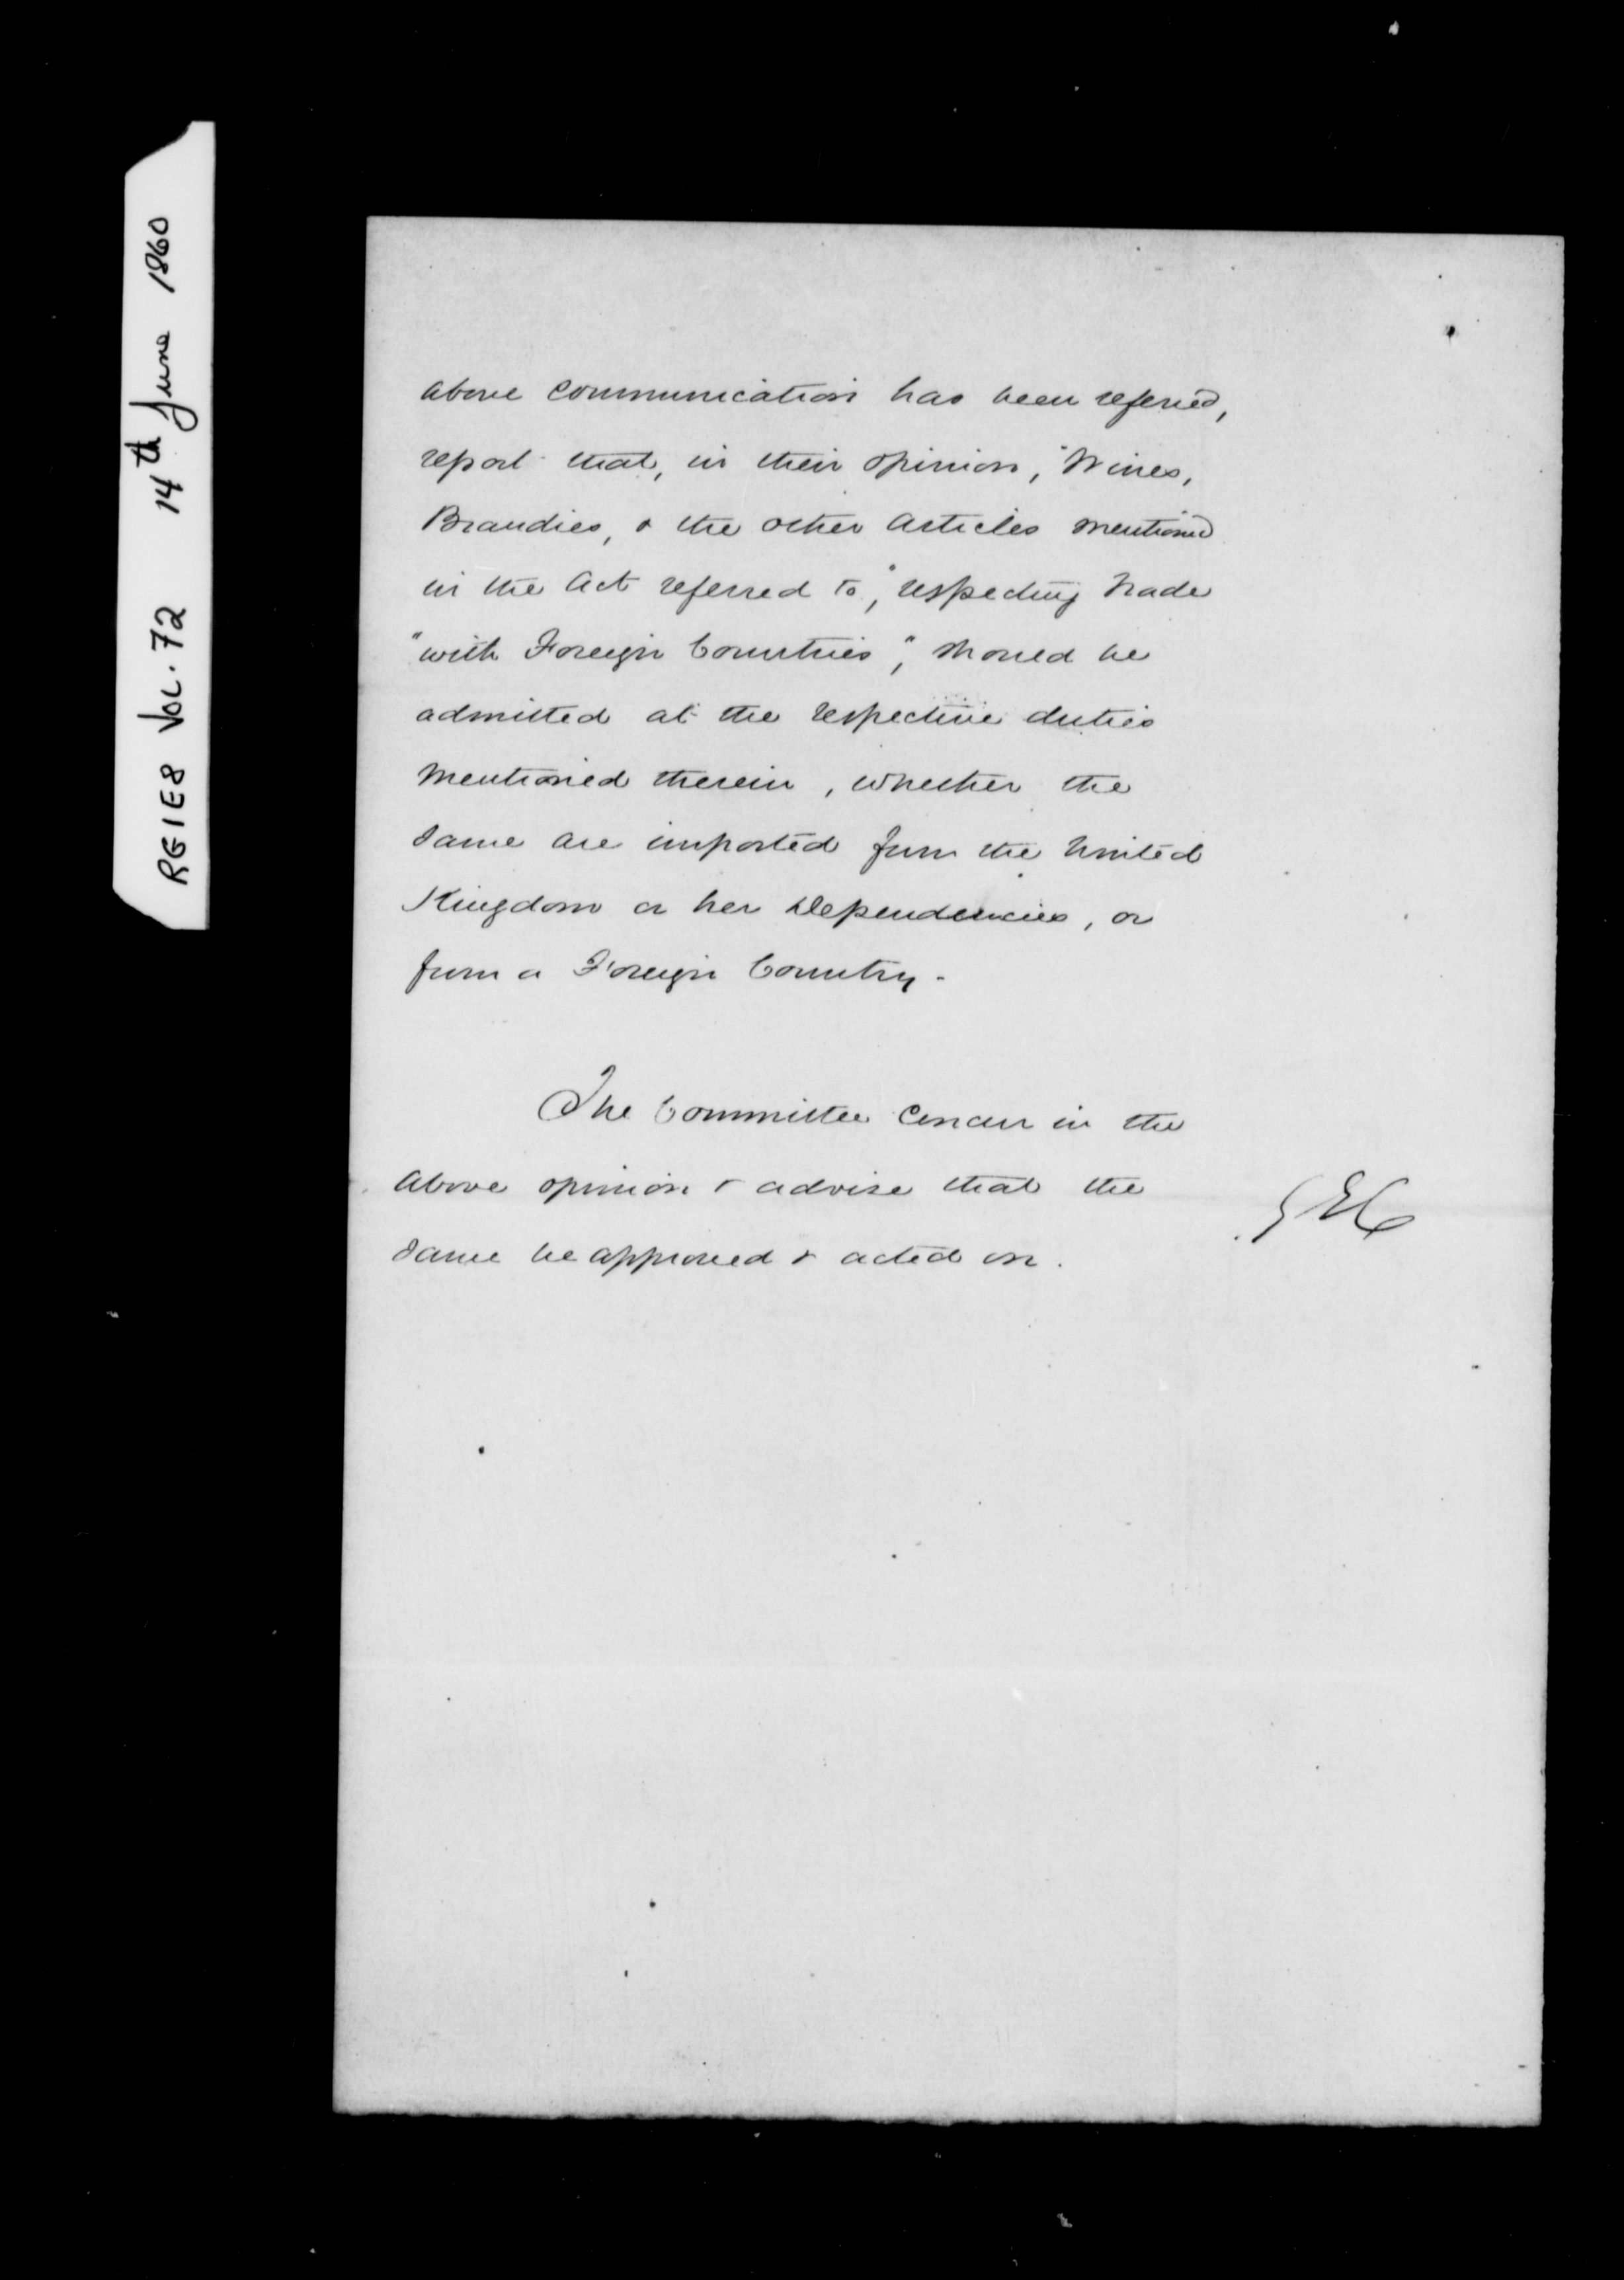 RG1E8 VOL. 72 14th June 1860
above communication has been referred,
report that, in their opinion, "Wines,
Brandies, & the other articles mentioned
in the Act referred to", "respecting Trade
"with Foreign Countries", should be
admitted at the respective duties
mentioned therein, whether the
same are imported from the United
Kingdom or her Dependencies, or
from a Foreign Country.
The Committee concur in the
above opinion & advise that the
same be approved & acted on.
GEC